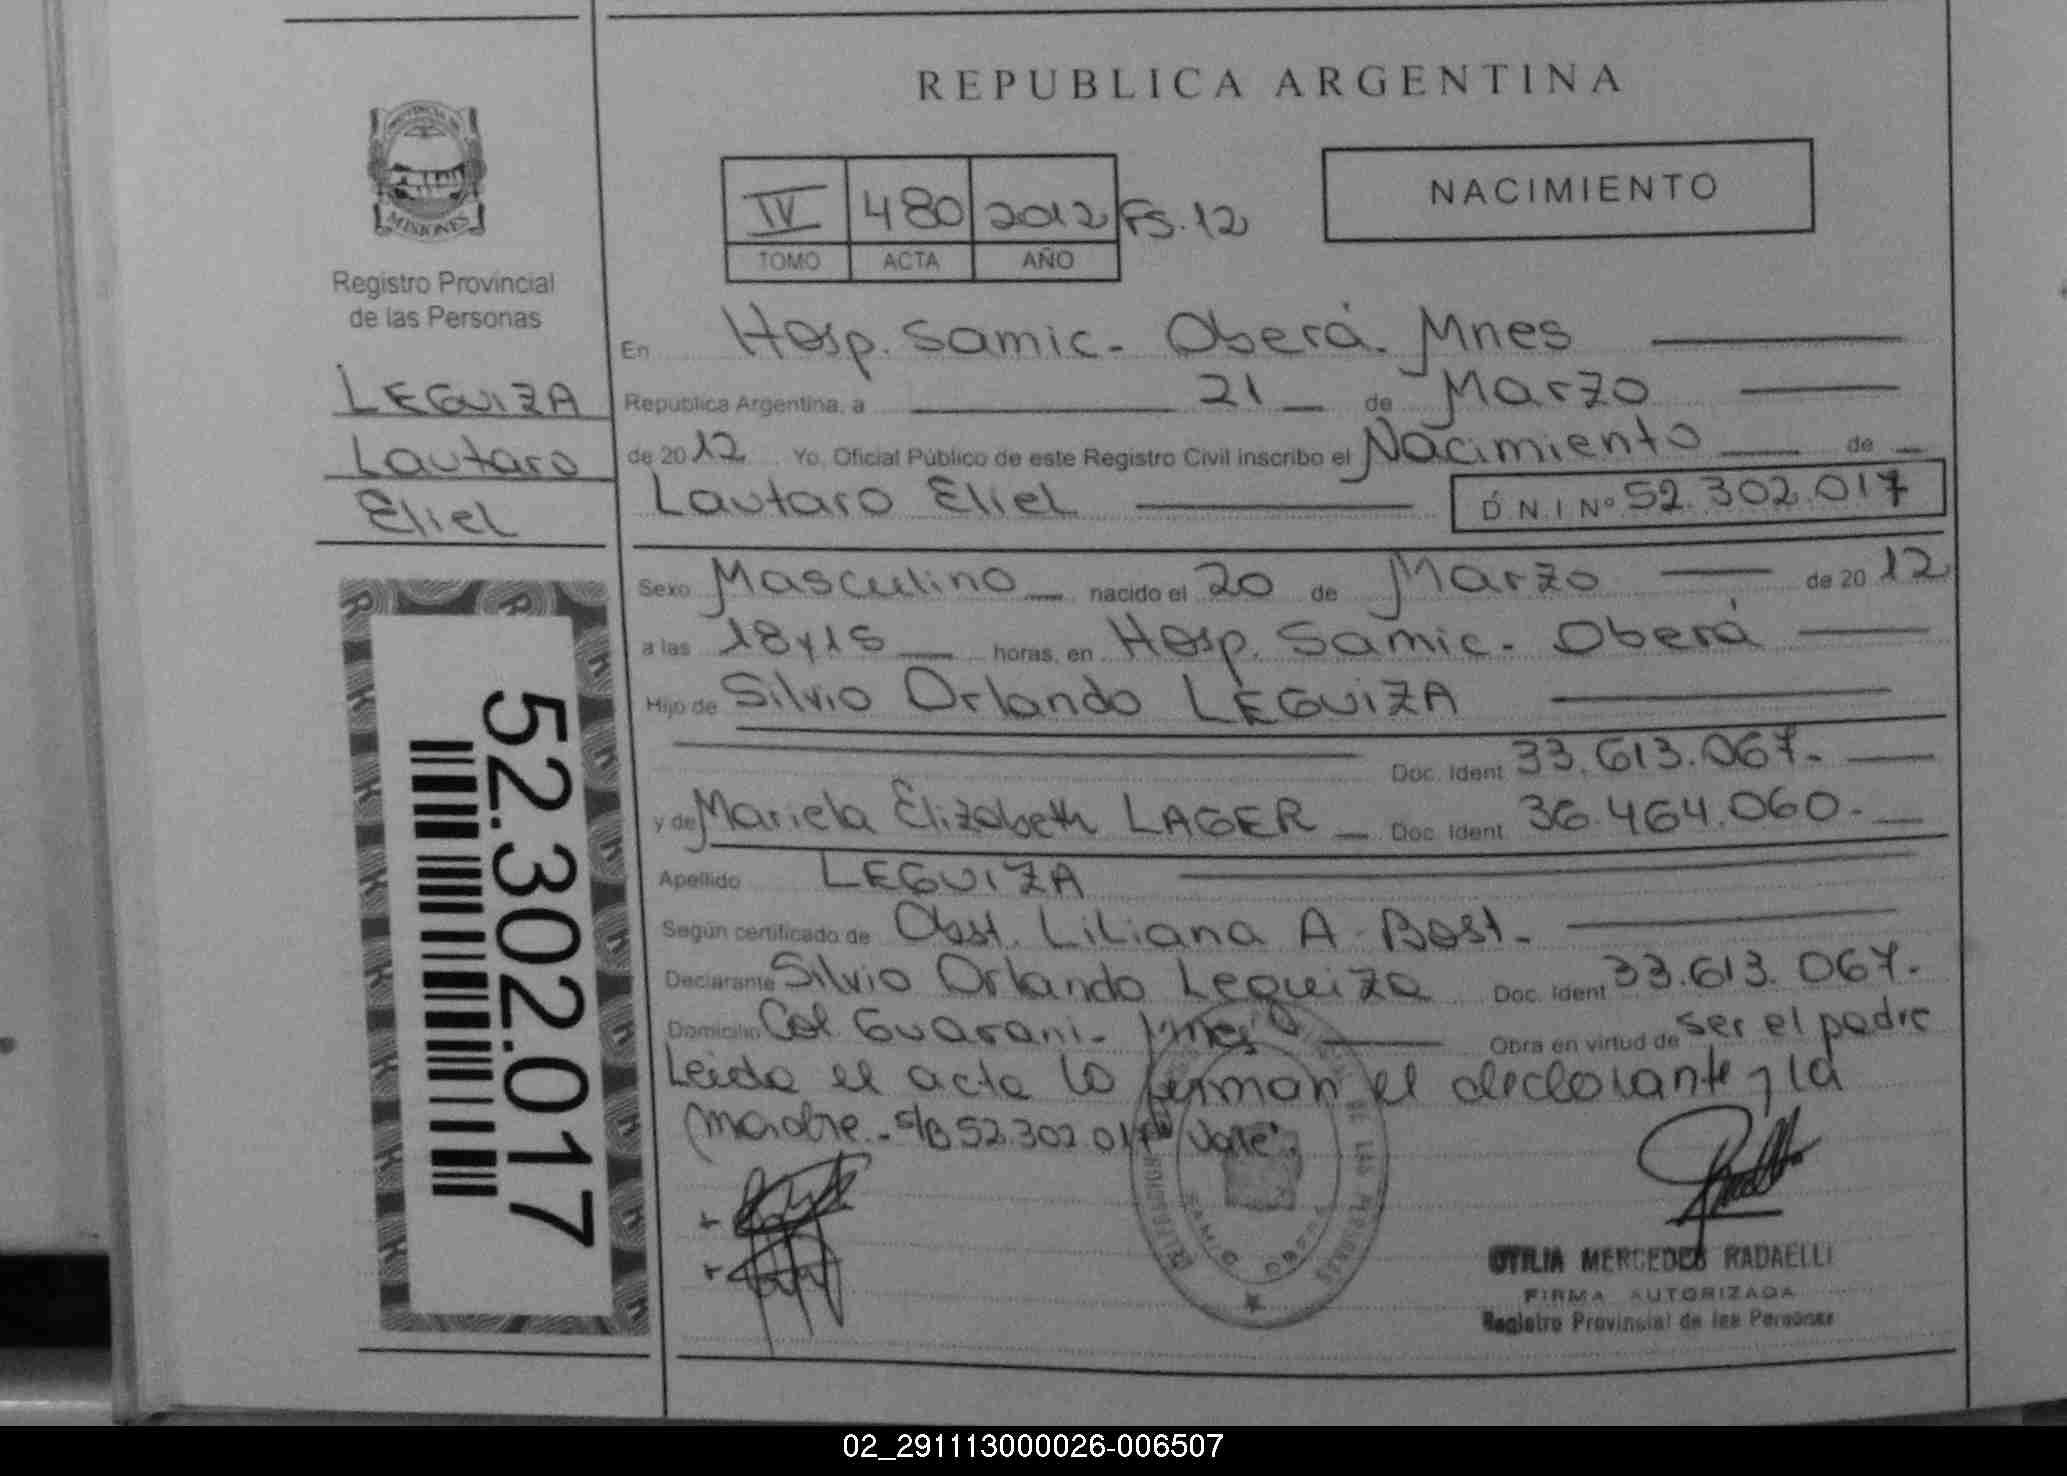 REPUBLICA ARGENTINA
NACIMIENTO
IV 480 2012 Fs. 12
TOMO ACTA AÑO
MISIONES
Registro Provincial
de las Personas
LEGUIZA
Lautaro
Eliel
52.302.017
En Hosp. Samic - Oberá. Mnes
Republica Argentina, a 21 de Marzo
de 2012 Yo, Oficial Público de este Registro Civil inscribo el Nacimiento de
Lautaro Eliel D.N.I Nº 52.302.017
Sexo Masculino nacido el 20 de Marzo de 2012
a las 18 y 15 horas, en Hosp. Samic - Oberá
Hijo de Silvio Orlando LEGUIZA
Doc. Ident 33.613.067.-
y de Mariela Elizabeth LAGER Doc. Ident. 36.464.060.-
Apellido LEGUIZA
Según certificado de Obst. Liliana A. Bost.-
Declarante Silvio Orlando Leguiza Doc. Ident 33.613.067.-
Domicilio Col Guarani - Mnes Obra en virtud de ser el padre
Leida el acta la firman el declarante y la
madre.- S/B 52.302.017 Vale.
DE LAS PERSONAS
OTILIA MERCEDES RADAELLI
FIRMA AUTORIZADA
Registro Provincial de las Personas
02_291113000026-006507